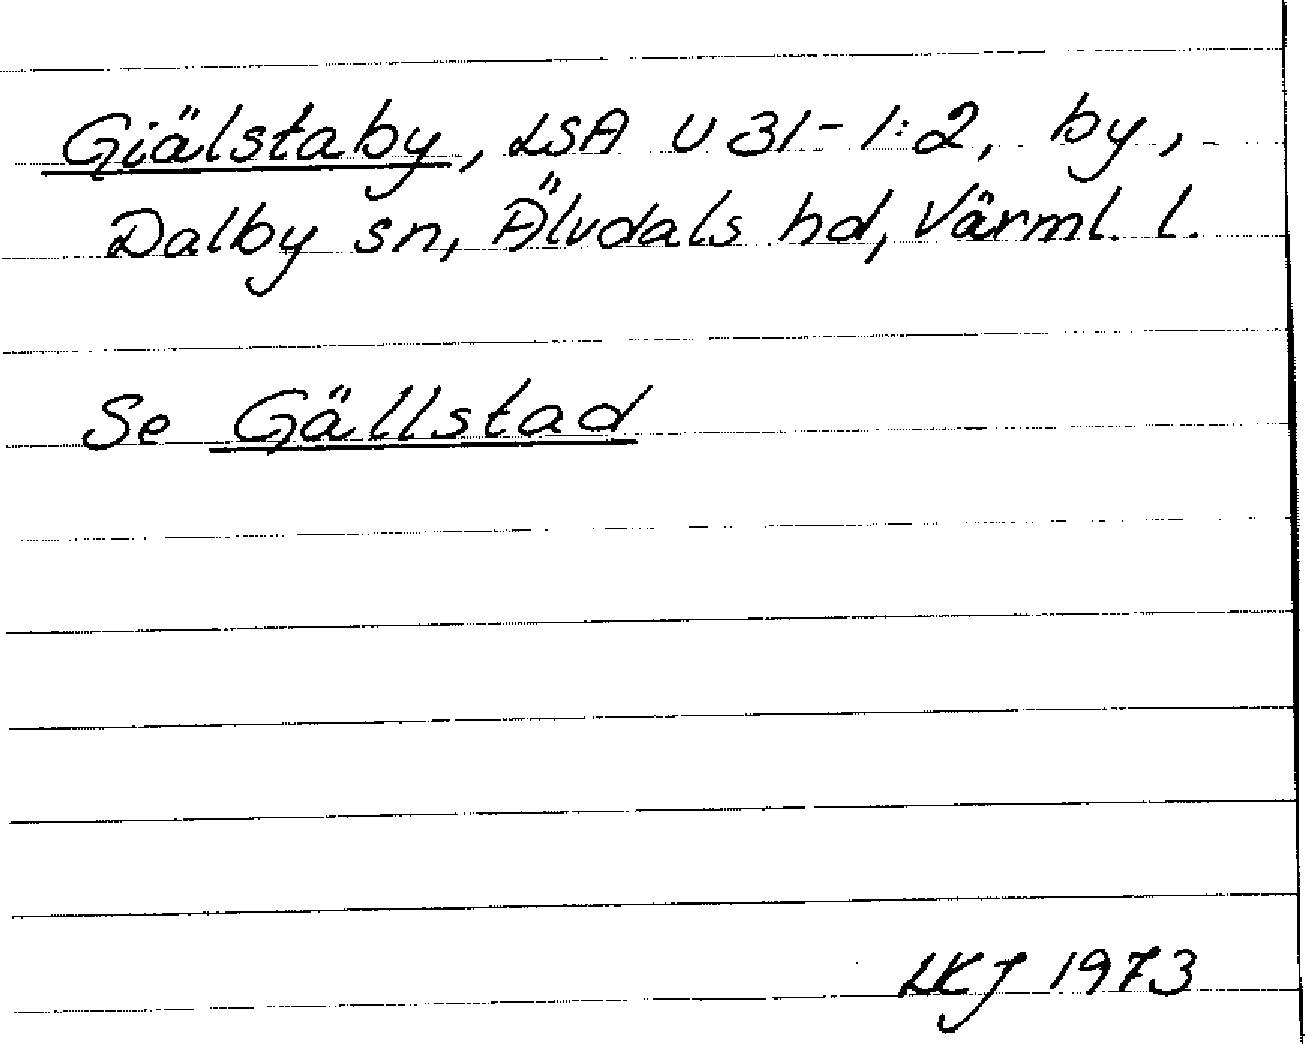 Giälstaby, LSA U 31-1:2, by,
Dalby sn, Älvdals hd, Värml. l.
Se Gällstad
LKJ 1973